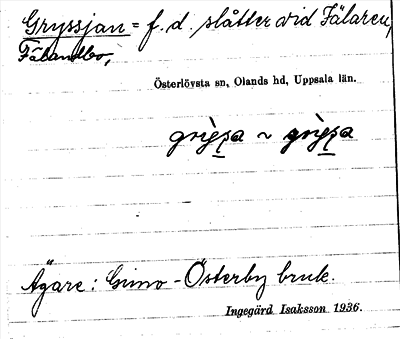 Gryssjan = f. d. slåtter vid Fälaren,
Fälandbo,
Österlövsta sn, Olands hd, Uppsala län.
~
Ägare: Gimo-Österby bruk.
Ingegärd Isaksson 1936.